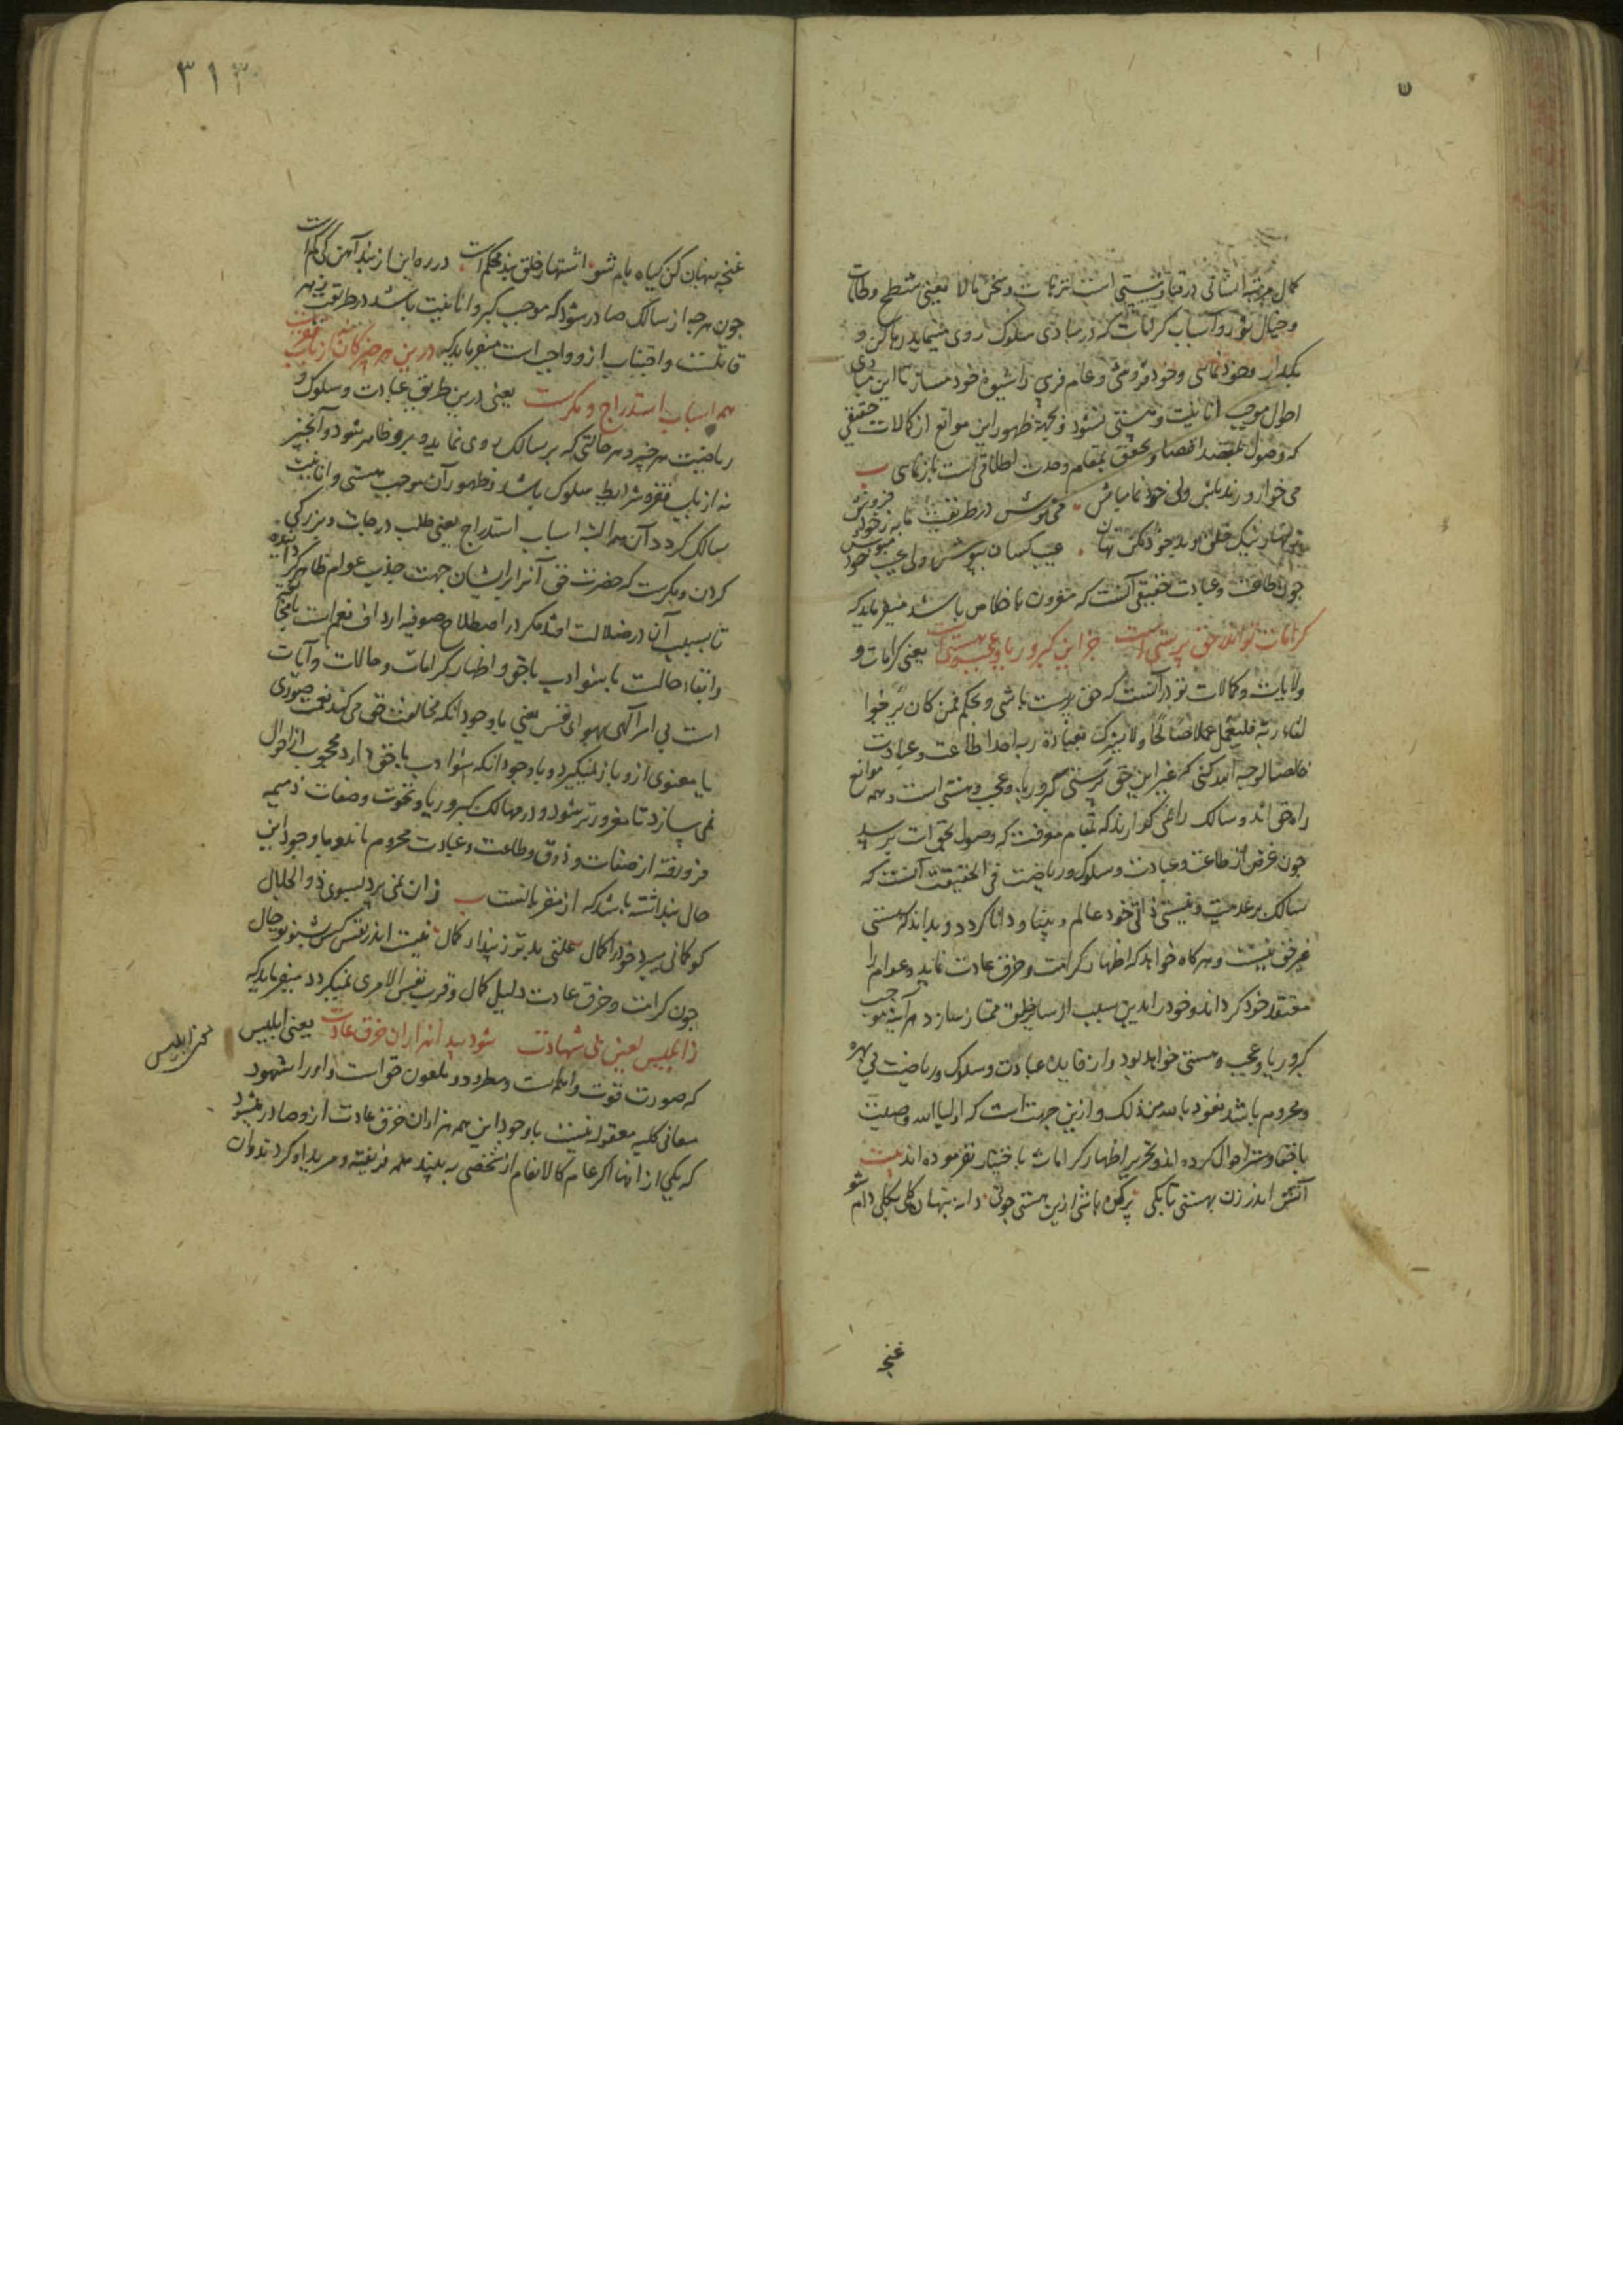 کمال مرتبه انسانی در فنا و نیستی است ترهات و سخن بالا یعنی شطح و طامات
و خیال نور و اسباب کرامات که در مبادی سلوک روی مینماید رها کن و
بگذار و خودنمائی و خودفروشی و عام فریبی را شیوه خود مساز تا این مبادی
احوال موجب انانیت و هستی نشود و بجهة ظهور این موانع از کمالات حقیقی
که وصول بمقصد اقصا و تحقق بمقام وحدت اطلاقی است بازنمانی
می خوار و رند باش ولی خودنما مباش می نوش در طریقت ما به ز خودفروش
چون طاعت و عبادت حقیقی آنست که مقرون باخلاص باشد میفرماید که
کرامات تو اندر حق پرستی است جز این کبر و ریا و عجب و هستی است یعنی کرامات و
ولایات و کمالات تو در آنست که حق پرست باشی و بحکم فمن کان یرجوا
لقاء ربه فلیعمل عملا صالحا و لا یشرک بعبادة ربه احدا طاعت و عبادت
خالصا لوجه الله کنی که غیر این حق پرستی کبر و ریا و عجب و هستی است و همه موانع
راه حق اند و سالک را نمی گذارند که بمقام معرفت که وصول بحق است برسد
چون غرض از طاعت و عبادت و سلوک و ریاضت فی الحقیقت آنست که
سالک بر عدمیت و نیستی ذاتی خود عالم و بینا و دانا گردد و بداند که هستی
غیر حق نیست و هرکاه خواهد که اظهار کرامت و خرق عادت نماید و عوام را
معتقد خود کرداند و خود را بدین سبب از سایر خلق ممتاز سازد هر آینه موجب
کبر و ریا و عجب و هستی خواهد بود و از فایده عبادت و سلوک و ریاضت بی بهره
و محروم باشد نعوذ بالله من ذلک و ازین جهت است که اولیاء الله وصیت
باخفا و ستر احوال کرده اند و تجویز اظهار کرامات باختیار نفرموده اند بیت
آتش اندر زن بهستی تا بکی پر گره باشی ازین هستی چو نی دانه پنهان کن بکلی دام شو
غنچه
۳۱۳
غنچه پنهان کن گیاه بام شو اشتهار خلق بند محکم است در ره این از بند آهن کی کم است
چون هرچه از سالک صادر شود که موجب کبر و انانیت باشد در طریقت زهر
قاتلست و اجتناب ازو واجب است میفرماید که درین هر چیز کان نه از باب فقر است
همه اسباب استدراج و مکر است یعنی درین طریق عبادت و سلوک و
ریاضت هر چیز و هر حالتی که بر سالک روی نماید و برو ظاهر شود و آن چیز
نه از باب فقر و شرایط سلوک باشد و ظهور آن موجب هستی و انانیت
سالک گردد آن همه البته اسباب استدراج یعنی طلب درجات و بزرگی
کردن و مکرست که حضرت حق آنرا بر ایشان جهت جذب عوام ظاهر گردانیده
تا بسبب آن در ضلالت افتند مکر در اصطلاح صوفیه ارداف نعم است با مخالفت
و ابقاء حالت با سوء ادب با حق و اظهار کرامات و حالات و آیات
است بی امر الهی بهوای نفس یعنی با وجود انکه مخالفت حق می کند نعمت صوری
یا معنوی ازو باز نمیگیرد و با وجود انکه سوء ادب با حق دارد محجوب از احوال
نمی سازد تا مغرورتر شود و در مهالک کبر و ریا و نخوت و صفات ذمیمه
فرو رفته از صفات و ذوق و طاعت و عبادت محروم ماند و با وجود این
حال پنداشته باشد که از مقربانست زان نمی پرد بسوی ذو الجلال
کو گمانی میبرد خود را کمال علتی بدتر ز پندار کمال نیست اندر نفس کس بشنو تو حال
چون کرامت و خرق عادت دلیل کمال و قرب نفس الامری نمیگردد میفرماید که
ز ابلیس لعین بی شهادت شود پیدا هزاران خرق عادت یعنی ابلیس
که صورت قوت واهمه است و مطرود و ملعون حق است و او را شهود
معانی کلیه معقوله نیست با وجود این همه هزاران خرق عادت ازو صادر میشود
که یکی از انها اگر عام کالانعام از شخصی به بینند همه فریفته و مرید او گردند و آن